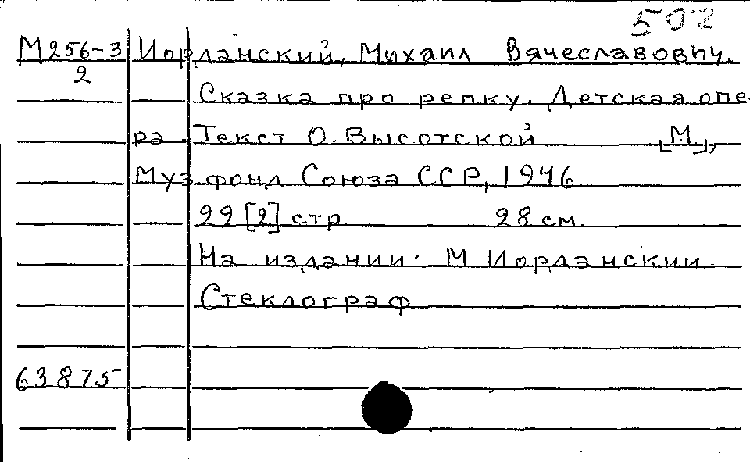 502
М256-3 Иорданский, Михаил Вячеславович.
2
Сказка про репку. Детская опе-
ра. Текст О. Высотской [М.],
Музфонд Союза ССР, 1946
22 [2] стр 28 см.
На издании: М Иорданский
Стеклограф
63875